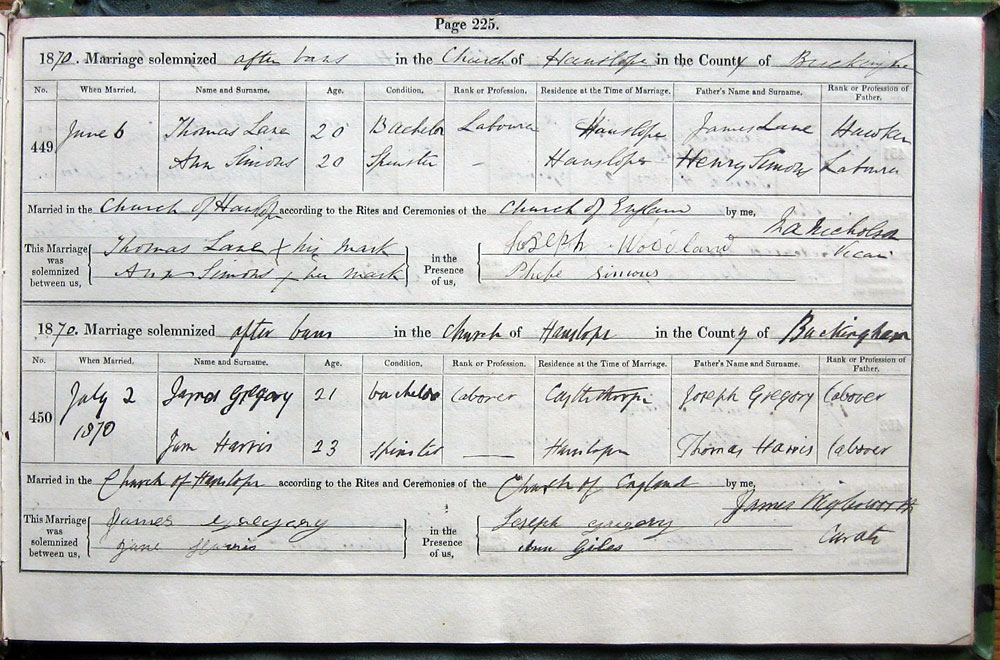 Page 225.
1870. Marriage solemnized after bans in the Church of Hanslope in the County of
No. When Married. Name and Surname. Age. Condition. Rank or Profession. Residence at the Time of Marriage. Father's Name and Surname. Rank or Profession of Father.
449 June 6 Thomas Lane 20 Bachelor Labourer Hanslope James Lane Hawker
Ann Simons 20 Spinster - Hanslope Henry Simons Labourer
Married in the Church of Hanslope according to the Rites and Ceremonies of the Church of England by me, Nicholson
Vicar
This Marriage was solemnized between us, Thomas Lane x his mark in the Presence of us, Joseph Woodland
Ann Simons x her mark Phebe Simons
1870. Marriage solemnized after bans in the Church of Hanslope in the County of Buckingham
No. When Married. Name and Surname. Age. Condition. Rank or Profession. Residence at the Time of Marriage. Father's Name and Surname. Rank or Profession of Father.
450 July 2 1870 James Gregory 21 bachelor labourer Joseph Gregory labourer
Jane Harris 23 spinster — Hanslope Thomas Harris labourer
Married in the Church of Hanslope according to the Rites and Ceremonies of the Church of England by me, James
Curate
This Marriage was solemnized between us, James Gregory in the Presence of us, Joseph Gregory
Jane Harris Ann Giles